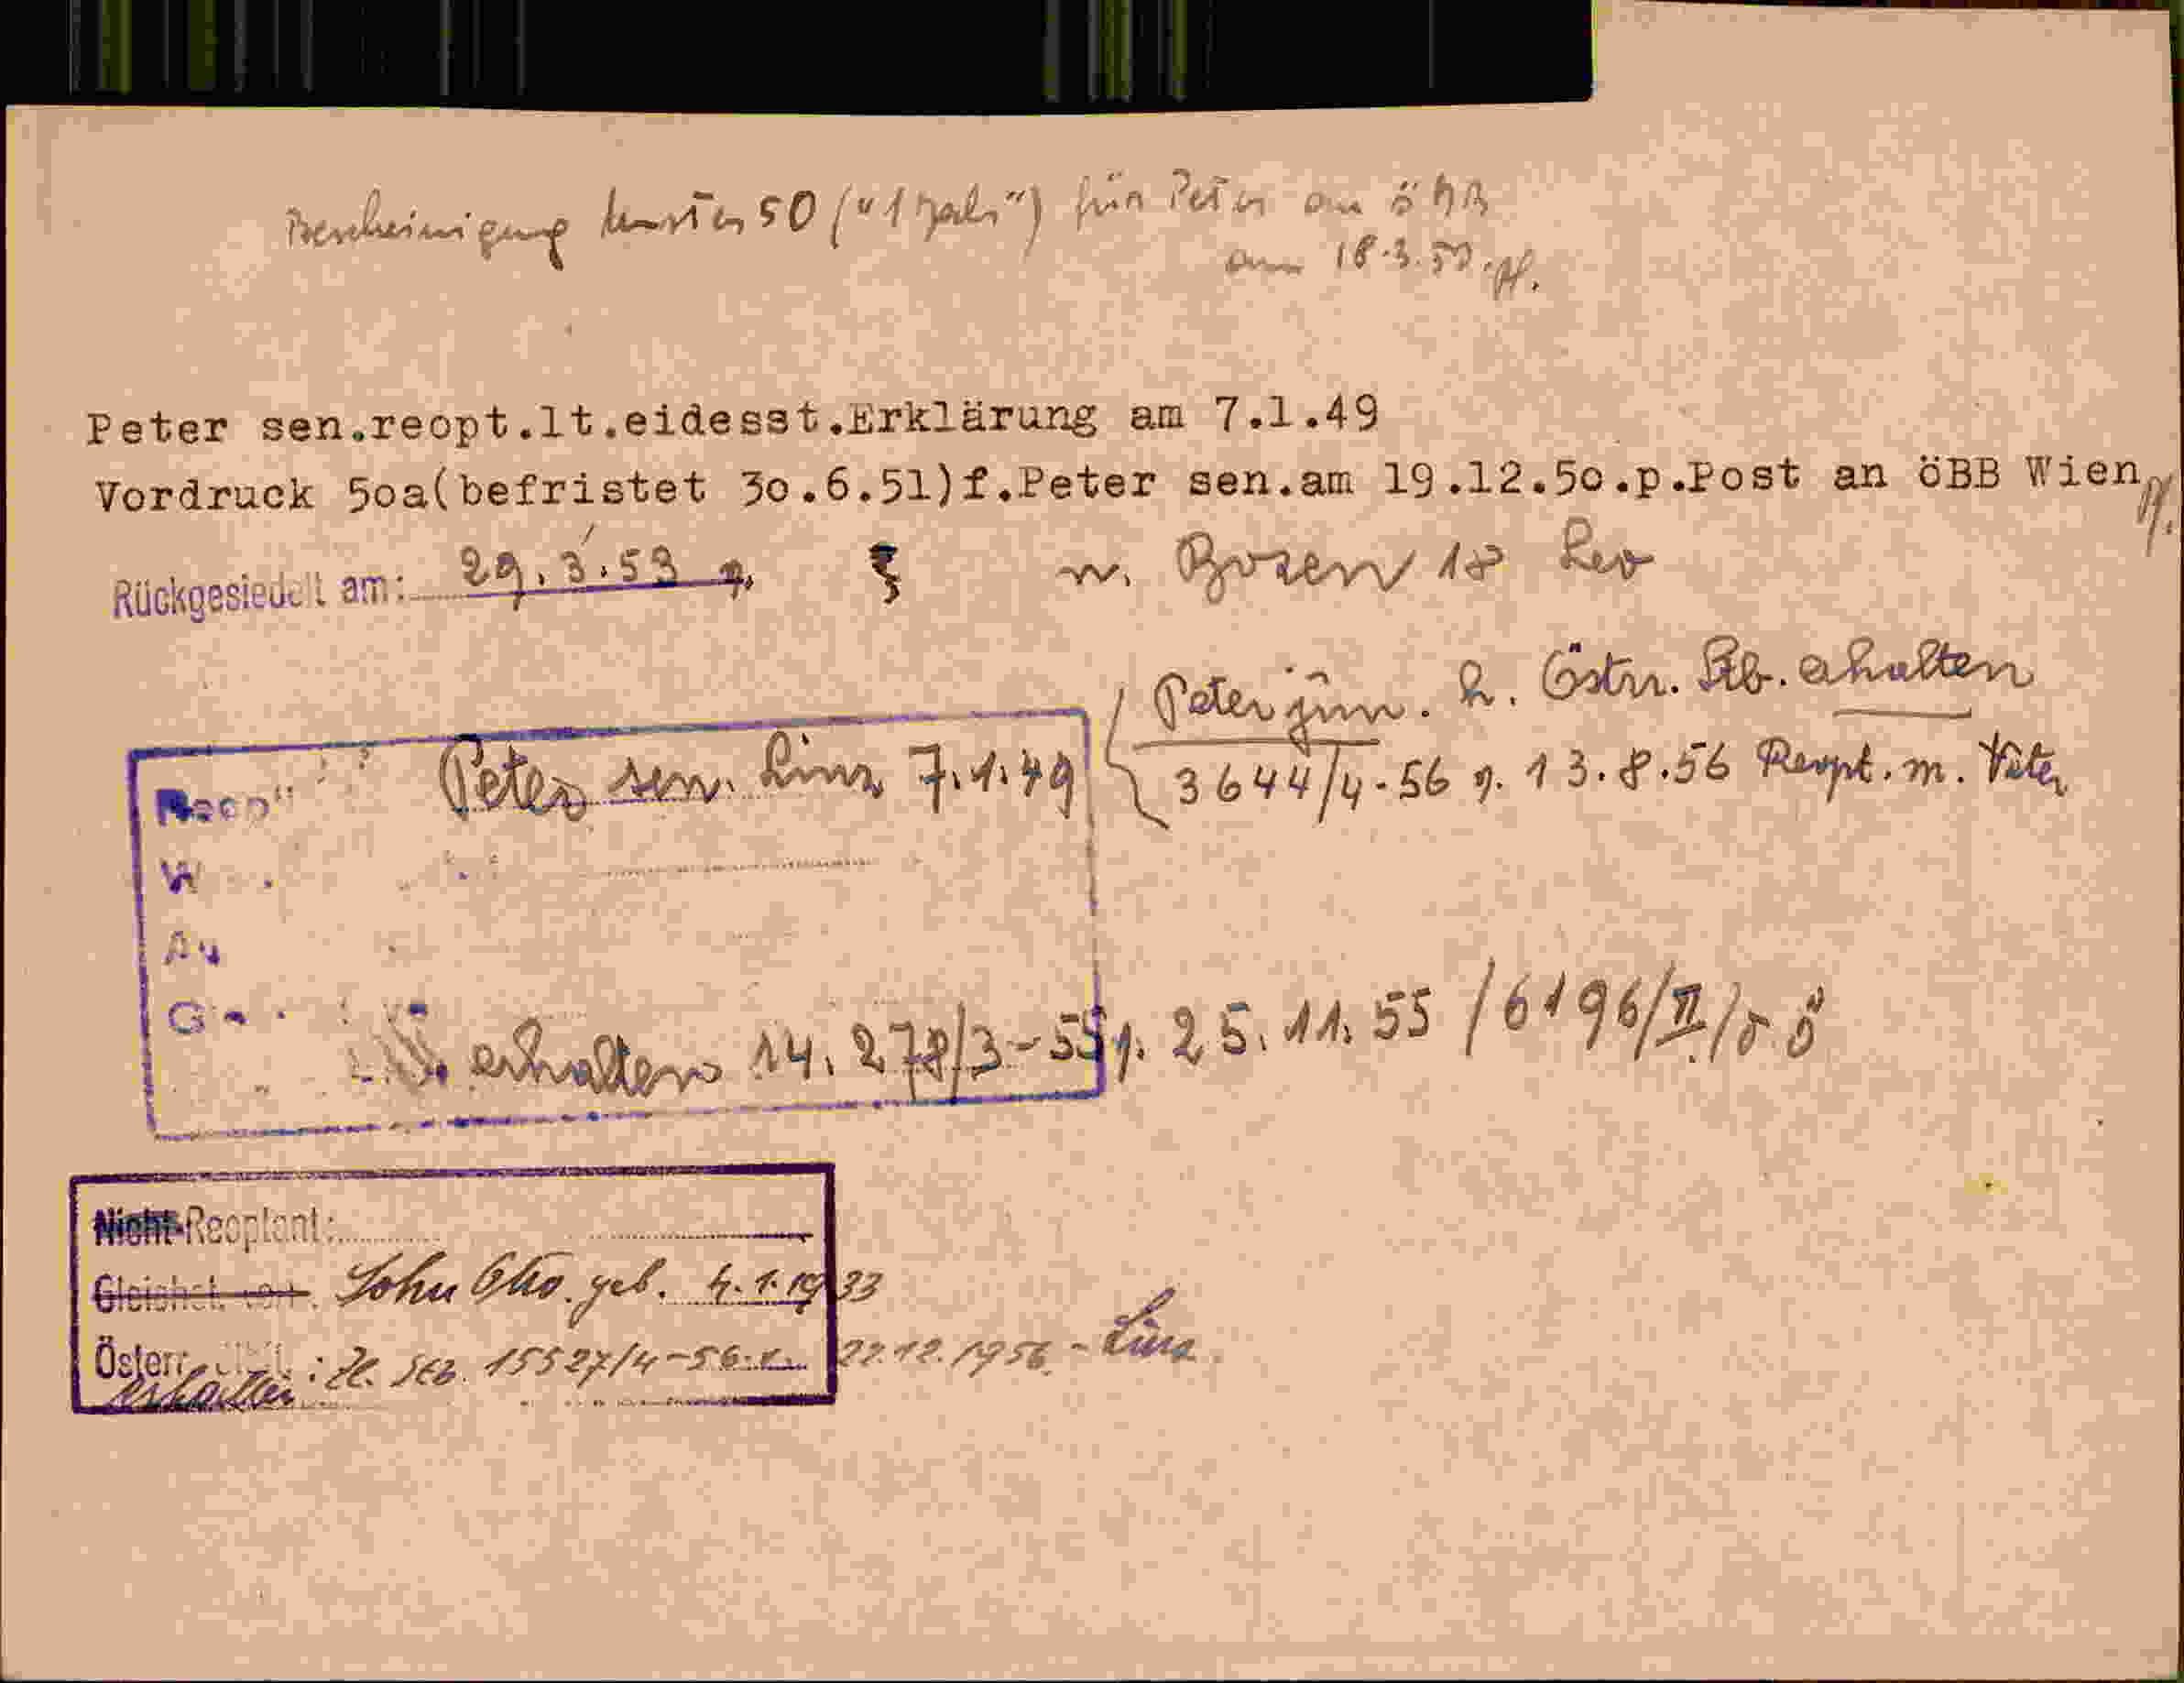 Bescheinigung Muster 50 ("1 Jahr") für Peter an öBB
am 18.3.50.
Peter sen.reopt.lt.eidesst.Erklärung am 7.1.49
Vordruck 5oa(befristet 3o.6.51)f.Peter sen.am 19.12.5o.p.Post an öBB Wien
Rückgesiedelt am: 29.3.53 n. Bozen 18 Leo
Peter jun. h. Östrr. Stb. erhalten
Peter sen. Linz 7.1.49
3644/4-56 v. 13.8.56 Reopt. m. Vater
erhalten 14.278/3-55 v. 25.11.55 /6196/II/
Nicht-Reoptant:
Gleichst. Sohn Otto. geb. 4.1.1933
Österr. : Zl. Stb. 15527/4-56. v. 22.12.1956. - Linz.
erhalten